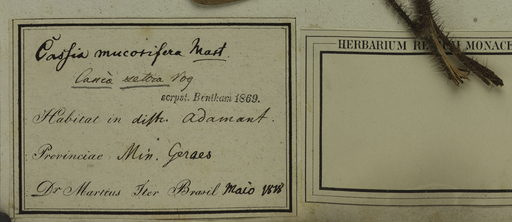 Cassia mucosifera Mart.
Cassia setosa Vog
scrpst. Bentham 1869.
Habitat in distr. adamant.
Provinciae Min. Geraes
Dr Martius Iter Brasil Maio 1818
HERBARIUM RE MONACE